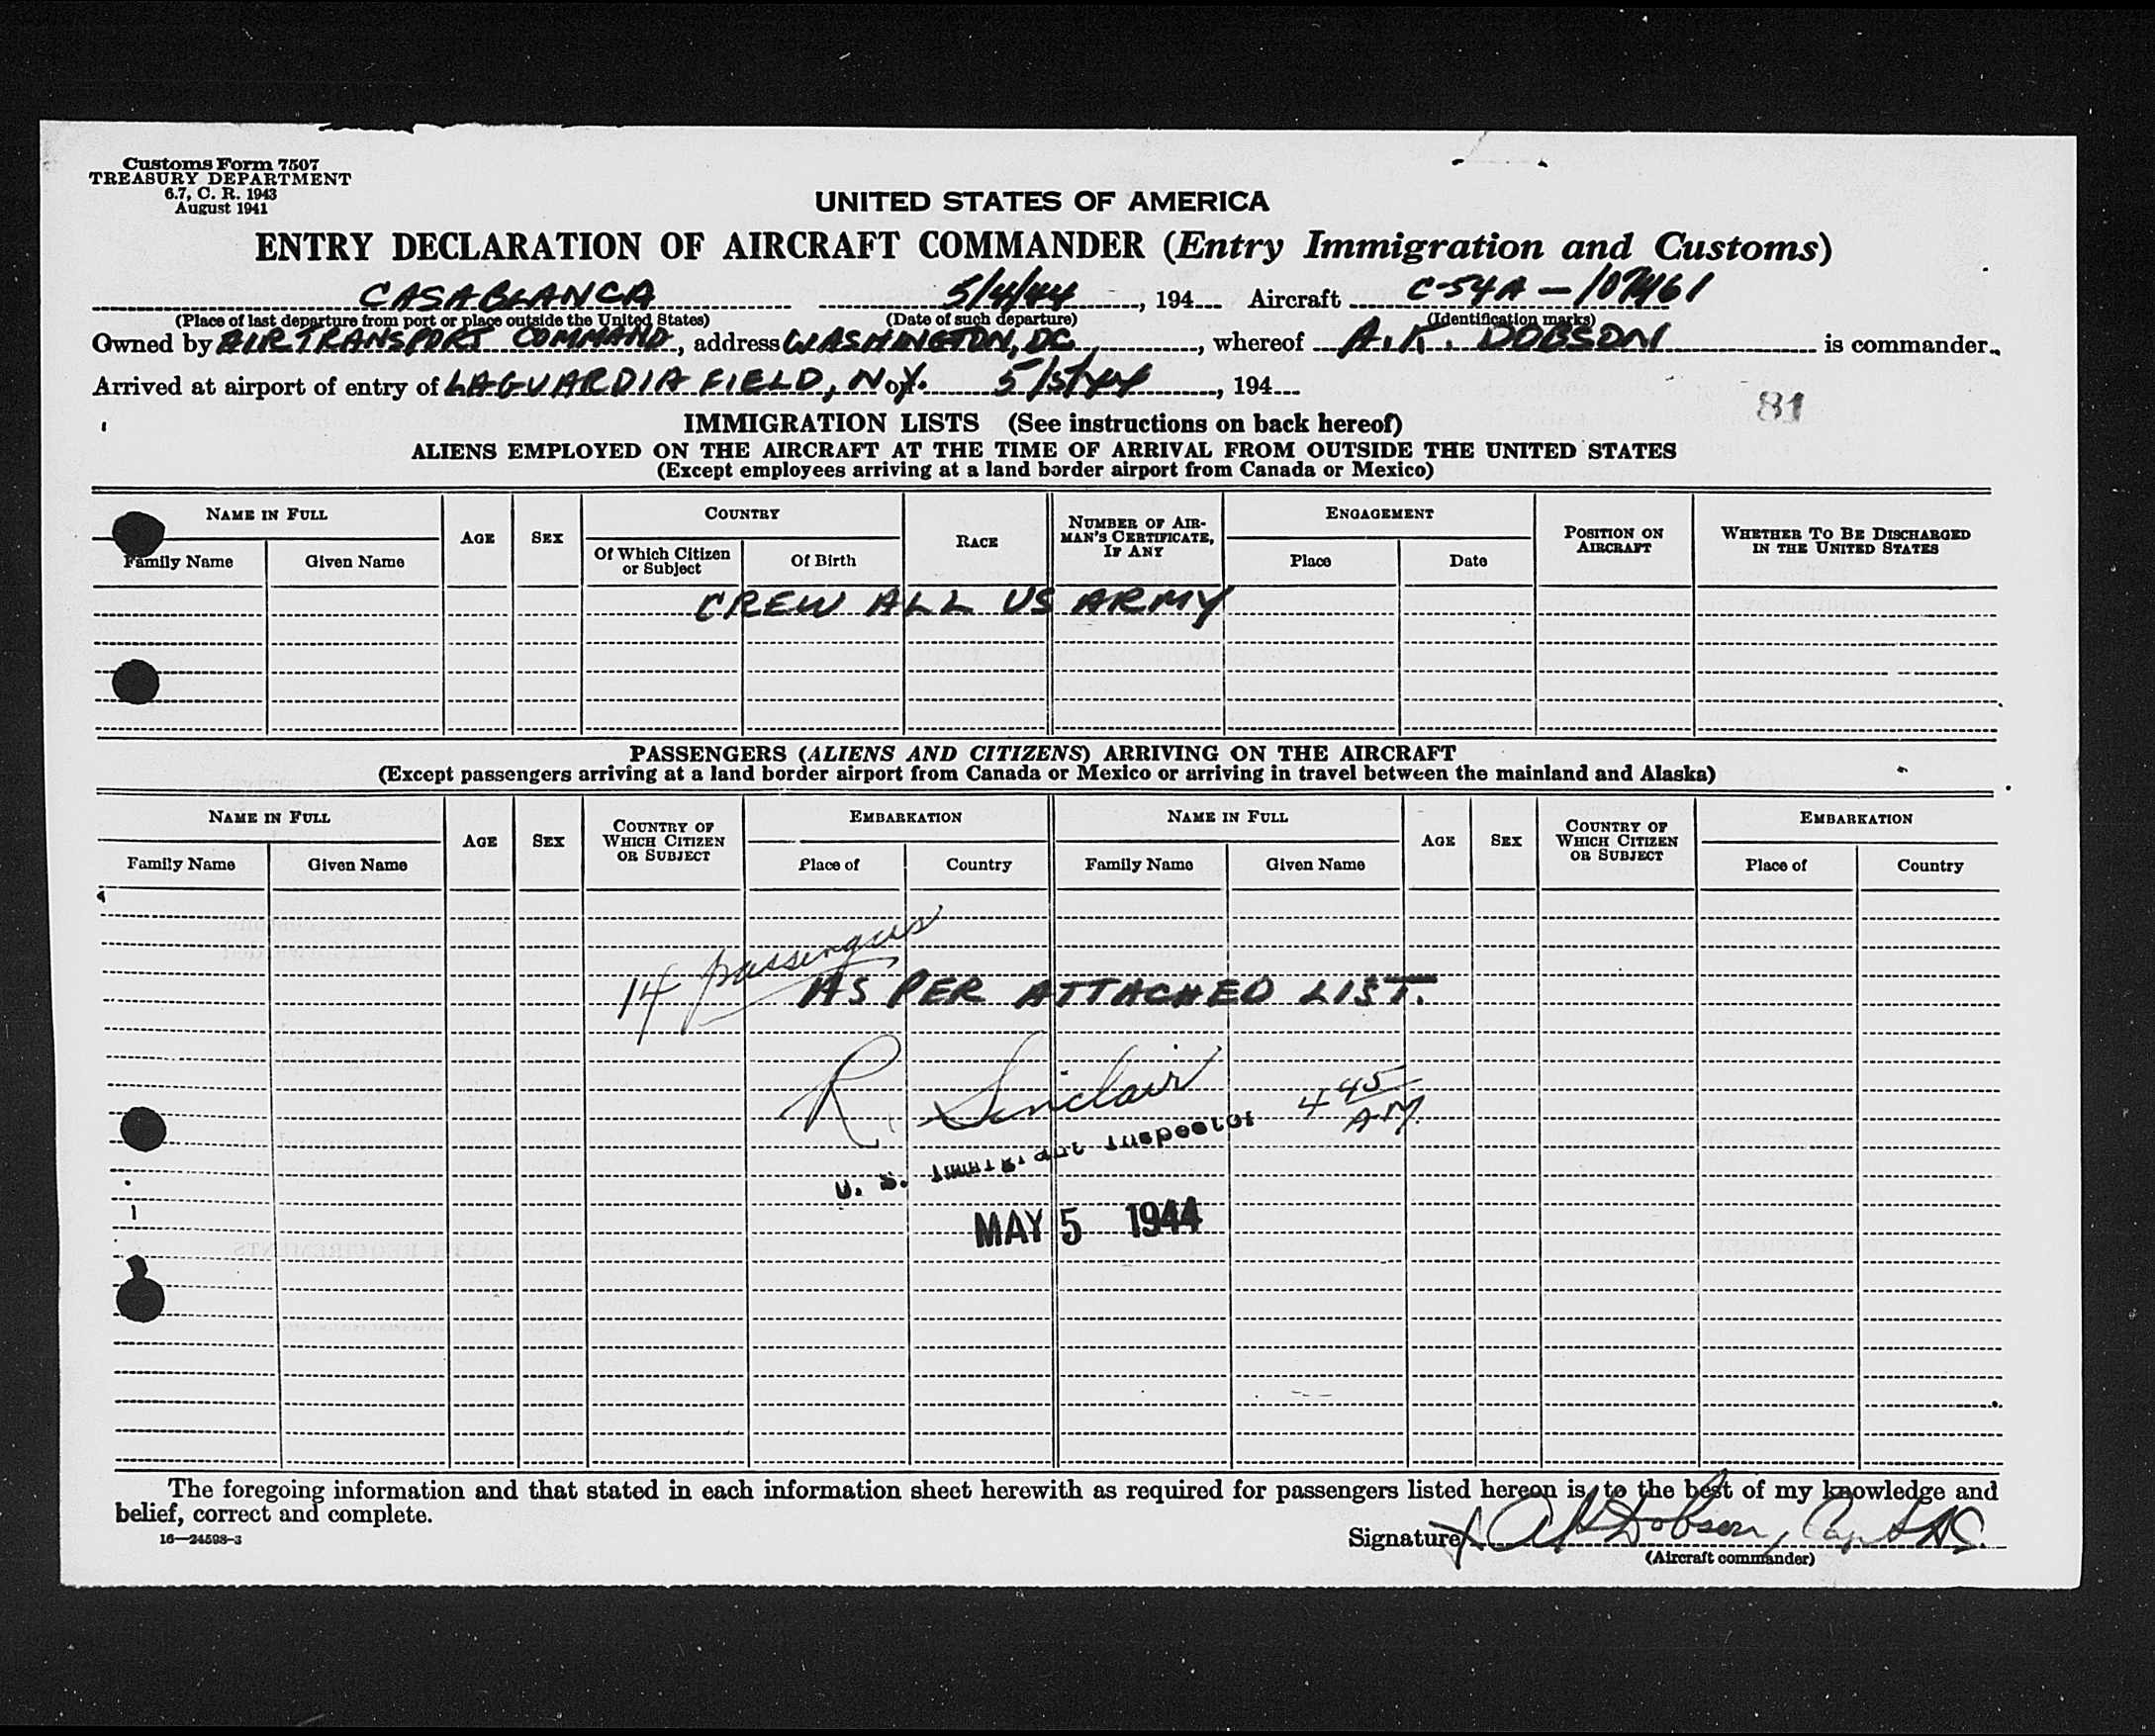 Customs Form 7507
TREASURY DEPARTMENT
6.7, C. R. 1943
August 1941
UNITED STATES OF AMERICA
ENTRY DECLARATION OF AIRCRAFT COMMANDER (Entry Immigration and Customs)
CASABLANCA 5/4/44, 194 Aircraft C-54A-
(Place of last departure from port or place outside the United States) (Date of such departure) (Identification marks)
Owned by AIR TRANSPORT COMMAND, address WASHINGTON, DC, whereof A.K. DOBSON is commander.
Arrived at airport of entry of LAGUARDIA FIELD, N.Y. on 5/5/44, 194
81
IMMIGRATION LISTS (See instructions on back hereof)
ALIENS EMPLOYED ON THE AIRCRAFT AT THE TIME OF ARRIVAL FROM OUTSIDE THE UNITED STATES
(Except employees arriving at a land border airport from Canada or Mexico)
NAME IN FULL AGE SEX COUNTRY RACE NUMBER OF AIRMAN'S CERTIFICATE, IF ANY ENGAGEMENT POSITION ON AIRCRAFT WHETHER TO BE DISCHARGED IN THE UNITED STATES
Family Name Given Name Of Which Citizen or Subject Of Birth Place Date
CREW ALL US ARMY
PASSENGERS (ALIENS AND CITIZENS) ARRIVING ON THE AIRCRAFT
(Except passengers arriving at a land border airport from Canada or Mexico or arriving in travel between the mainland and Alaska)
NAME IN FULL AGE SEX COUNTRY OF WHICH CITIZEN OR SUBJECT EMBARKATION NAME IN FULL AGE SEX COUNTRY OF WHICH CITIZEN OR SUBJECT EMBARKATION
Family Name Given Name Place of Country Family Name Given Name Place of Country
14 passengers
AS PER ATTACHED LIST.
R. Sinclair 4 45 AM.
U. S. Immigrant Inspector
MAY 5 1944
The foregoing information and that stated in each information sheet herewith as required for passengers listed hereon is, to the best of my knowledge and
belief, correct and complete.
16—24598-3
Signature X A K Dobson, Capt AC.
(Aircraft commander)